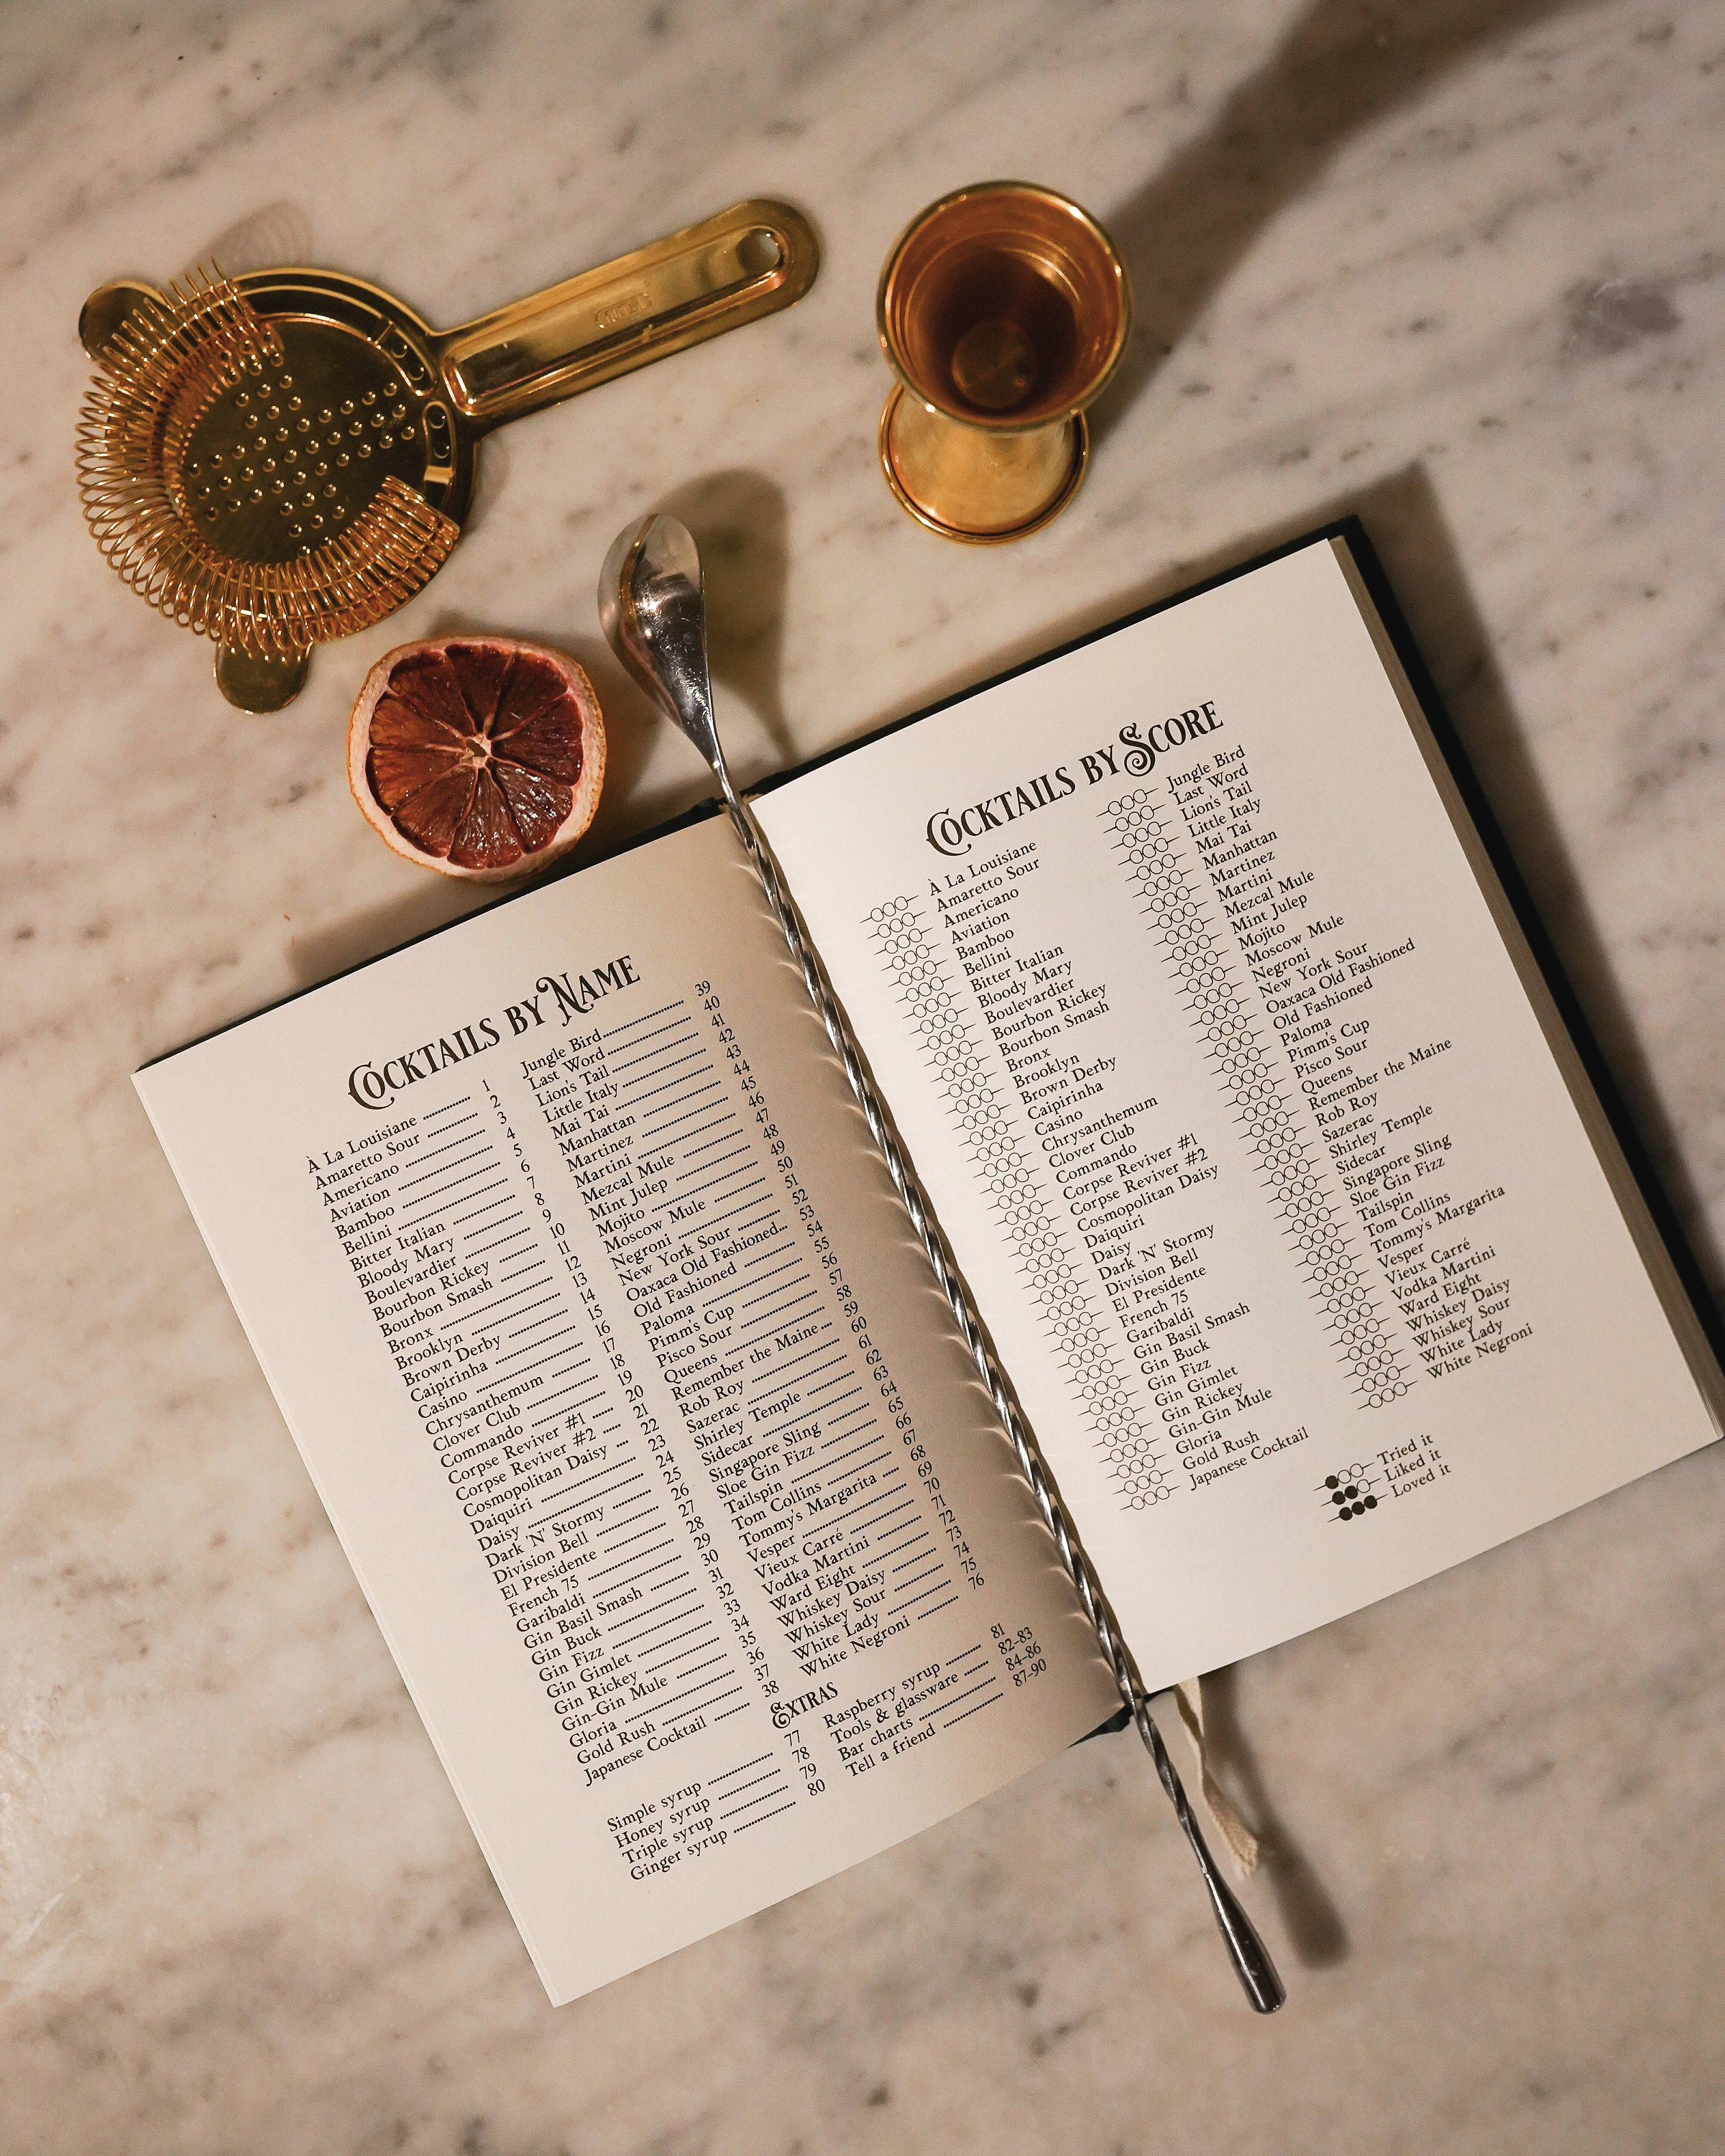 COCKTAILS BY NAME
À La Louisiane 1
Amaretto Sour 2
Americano 3
Aviation 4
Bamboo 5
Bellini 6
Bitter Italian 7
Bloody Mary 8
Boulevardier 9
Bourbon Rickey 10
Bourbon Smash 11
Bronx 12
Brooklyn 13
Brown Derby 14
Caipirinha 15
Casino 16
Chrysanthemum 17
Clover Club 18
Commando 19
Corpse Reviver #1 20
Corpse Reviver #2 21
Cosmopolitan Daisy 22
Daiquiri 23
Daisy 24
Dark 'N' Stormy 25
Division Bell 26
El Presidente 27
French 75 28
Garibaldi 29
Gin Basil Smash 30
Gin Buck 31
Gin Fizz 32
Gin Gimlet 33
Gin Rickey 34
Gin-Gin Mule 35
Gloria 36
Gold Rush 37
Japanese Cocktail 38
Jungle Bird 39
Last Word 40
Lion's Tail 41
Little Italy 42
Mai Tai 43
Manhattan 44
Martinez 45
Martini 46
Mezcal Mule 47
Mint Julep 48
Mojito 49
Moscow Mule 50
Negroni 51
New York Sour 52
Oaxaca Old Fashioned 53
Old Fashioned 54
Paloma 55
Pimm's Cup 56
Pisco Sour 57
Queens 58
Remember the Maine 59
Rob Roy 60
Sazerac 61
Shirley Temple 62
Sidecar 63
Singapore Sling 64
Sloe Gin Fizz 65
Tailspin 66
Tom Collins 67
Tommy's Margarita 68
Vesper 69
Vieux Carré 70
Vodka Martini 71
Ward Eight 72
Whiskey Daisy 73
Whiskey Sour 74
White Lady 75
White Negroni 76
EXTRAS
Simple syrup 77
Honey syrup 78
Triple syrup 79
Ginger syrup 80
Raspberry syrup 81
Tools & glassware 82-83
Bar charts 84-86
Tell a friend 87-90
COCKTAILS BY SCORE
À La Louisiane
Amaretto Sour
Americano
Aviation
Bamboo
Bellini
Bitter Italian
Bloody Mary
Boulevardier
Bourbon Rickey
Bourbon Smash
Bronx
Brooklyn
Brown Derby
Caipirinha
Casino
Chrysanthemum
Clover Club
Commando
Corpse Reviver #1
Corpse Reviver #2
Cosmopolitan Daisy
Daiquiri
Daisy
Dark 'N' Stormy
Division Bell
El Presidente
French 75
Garibaldi
Gin Basil Smash
Gin Buck
Gin Fizz
Gin Gimlet
Gin Rickey
Gin-Gin Mule
Gloria
Gold Rush
Japanese Cocktail
Jungle Bird
Last Word
Lion's Tail
Little Italy
Mai Tai
Manhattan
Martinez
Martini
Mezcal Mule
Mint Julep
Mojito
Moscow Mule
Negroni
New York Sour
Oaxaca Old Fashioned
Old Fashioned
Paloma
Pimm's Cup
Pisco Sour
Queens
Remember the Maine
Rob Roy
Sazerac
Shirley Temple
Sidecar
Singapore Sling
Sloe Gin Fizz
Tailspin
Tom Collins
Tommy's Margarita
Vesper
Vieux Carré
Vodka Martini
Ward Eight
Whiskey Daisy
Whiskey Sour
White Lady
White Negroni
Tried it
Liked it
Loved it